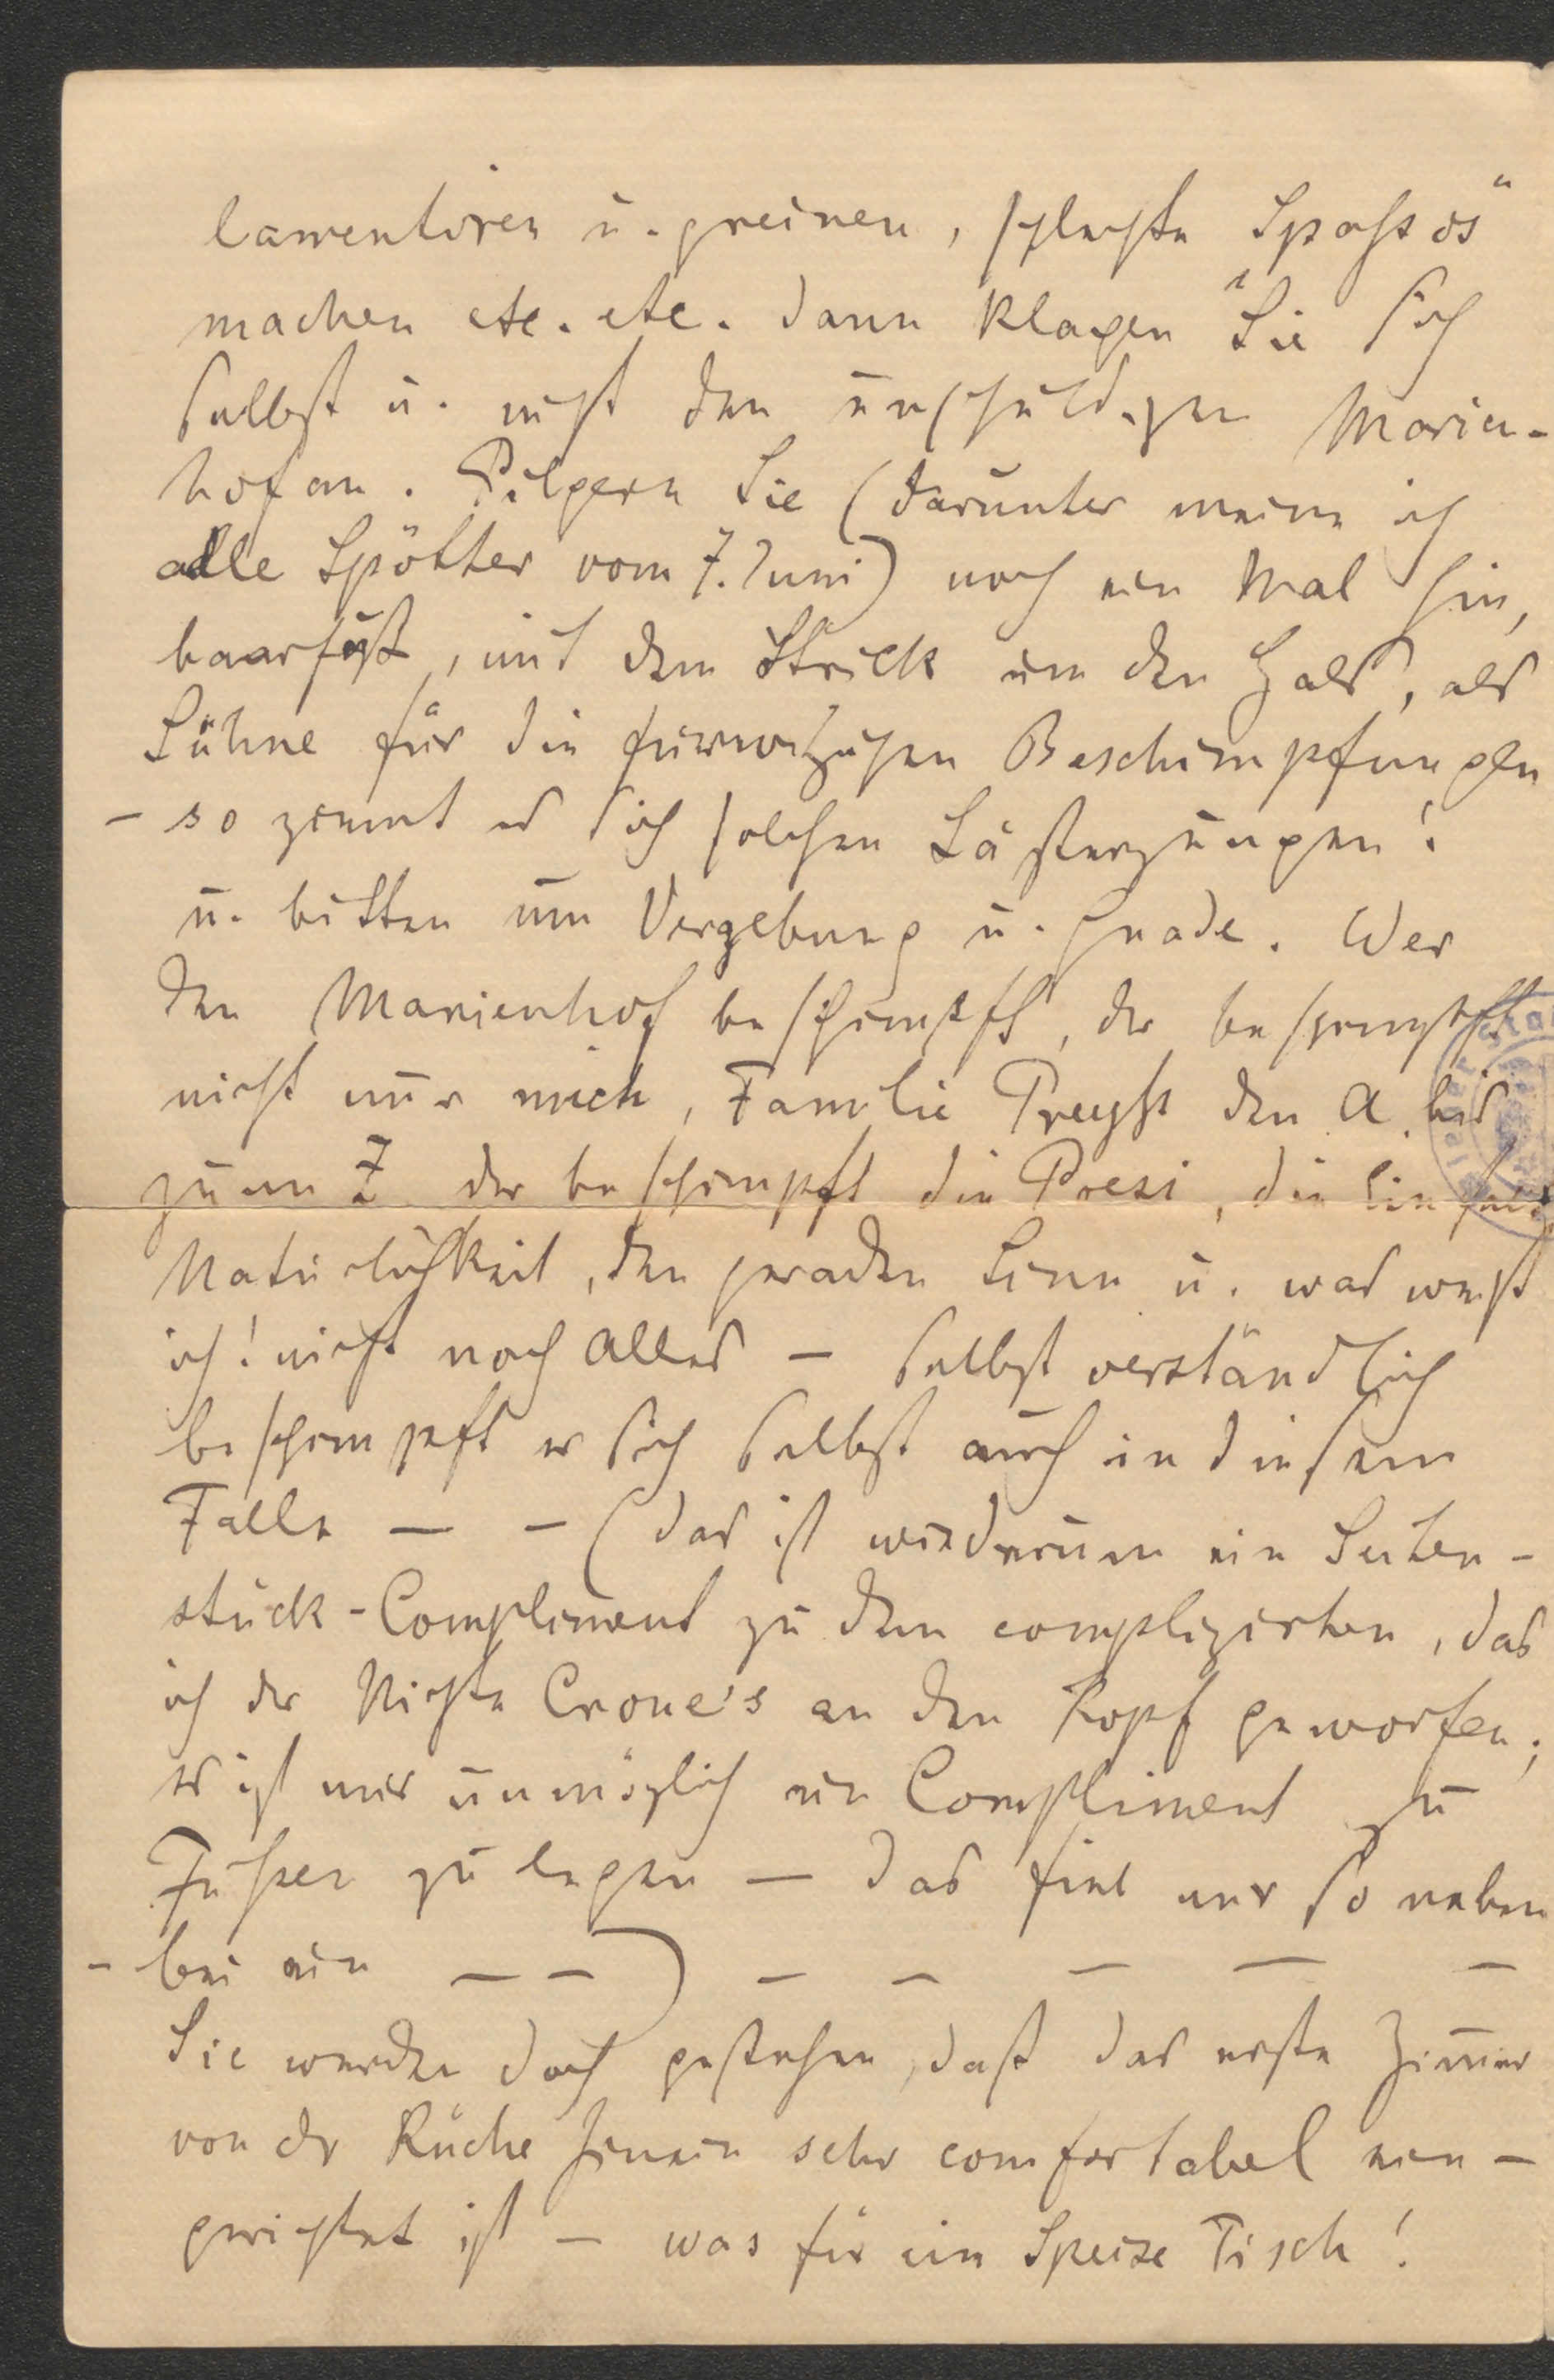 lamentiren u. greinen, schlechte „Spasses“
machen etc. etc. dann klagen Sie sich
selbst u. nicht den unschuldigen Marien-
hof an. Pilgern Sie (darunter meine ich
alle Spötter vom 7. Juni) noch ein Mal hin,
baarfuß, mit dem Strick um den Hals, als
Sühne für die fürwitzigen Beschimpfungen
– so ziemt es sich solchen Lästerzungen!
u. bitten um Vergebung u. Gnade. Wer
den Marienhof beschimpft, der beschimpft
nicht nur mich, Familie Preyss den A bis
zum Z der beschimpft die Poesi, die Einfach
Natürlichkeit, den geraden Sinn u. was weiß
ich! nicht noch Alles – selbst verständlich
beschimpft er sich selbst auch in diesem
Falle — – (das ist wiederum ein Seiten-
stück-Compliment zu dem complizirten, das
ich der Nichte Crone's an den Kopf geworfen;
es ist mir unmöglich ein Compliment zu
Füßen zu legen — das fiel mir so neben
- bei ein — –) – – – — –
Sie werden doch gestehen, daß das erste Zimmer
von der Küche hinein sehr comfortabel ein-
gerichtet ist – was für ein Speise Tisch!